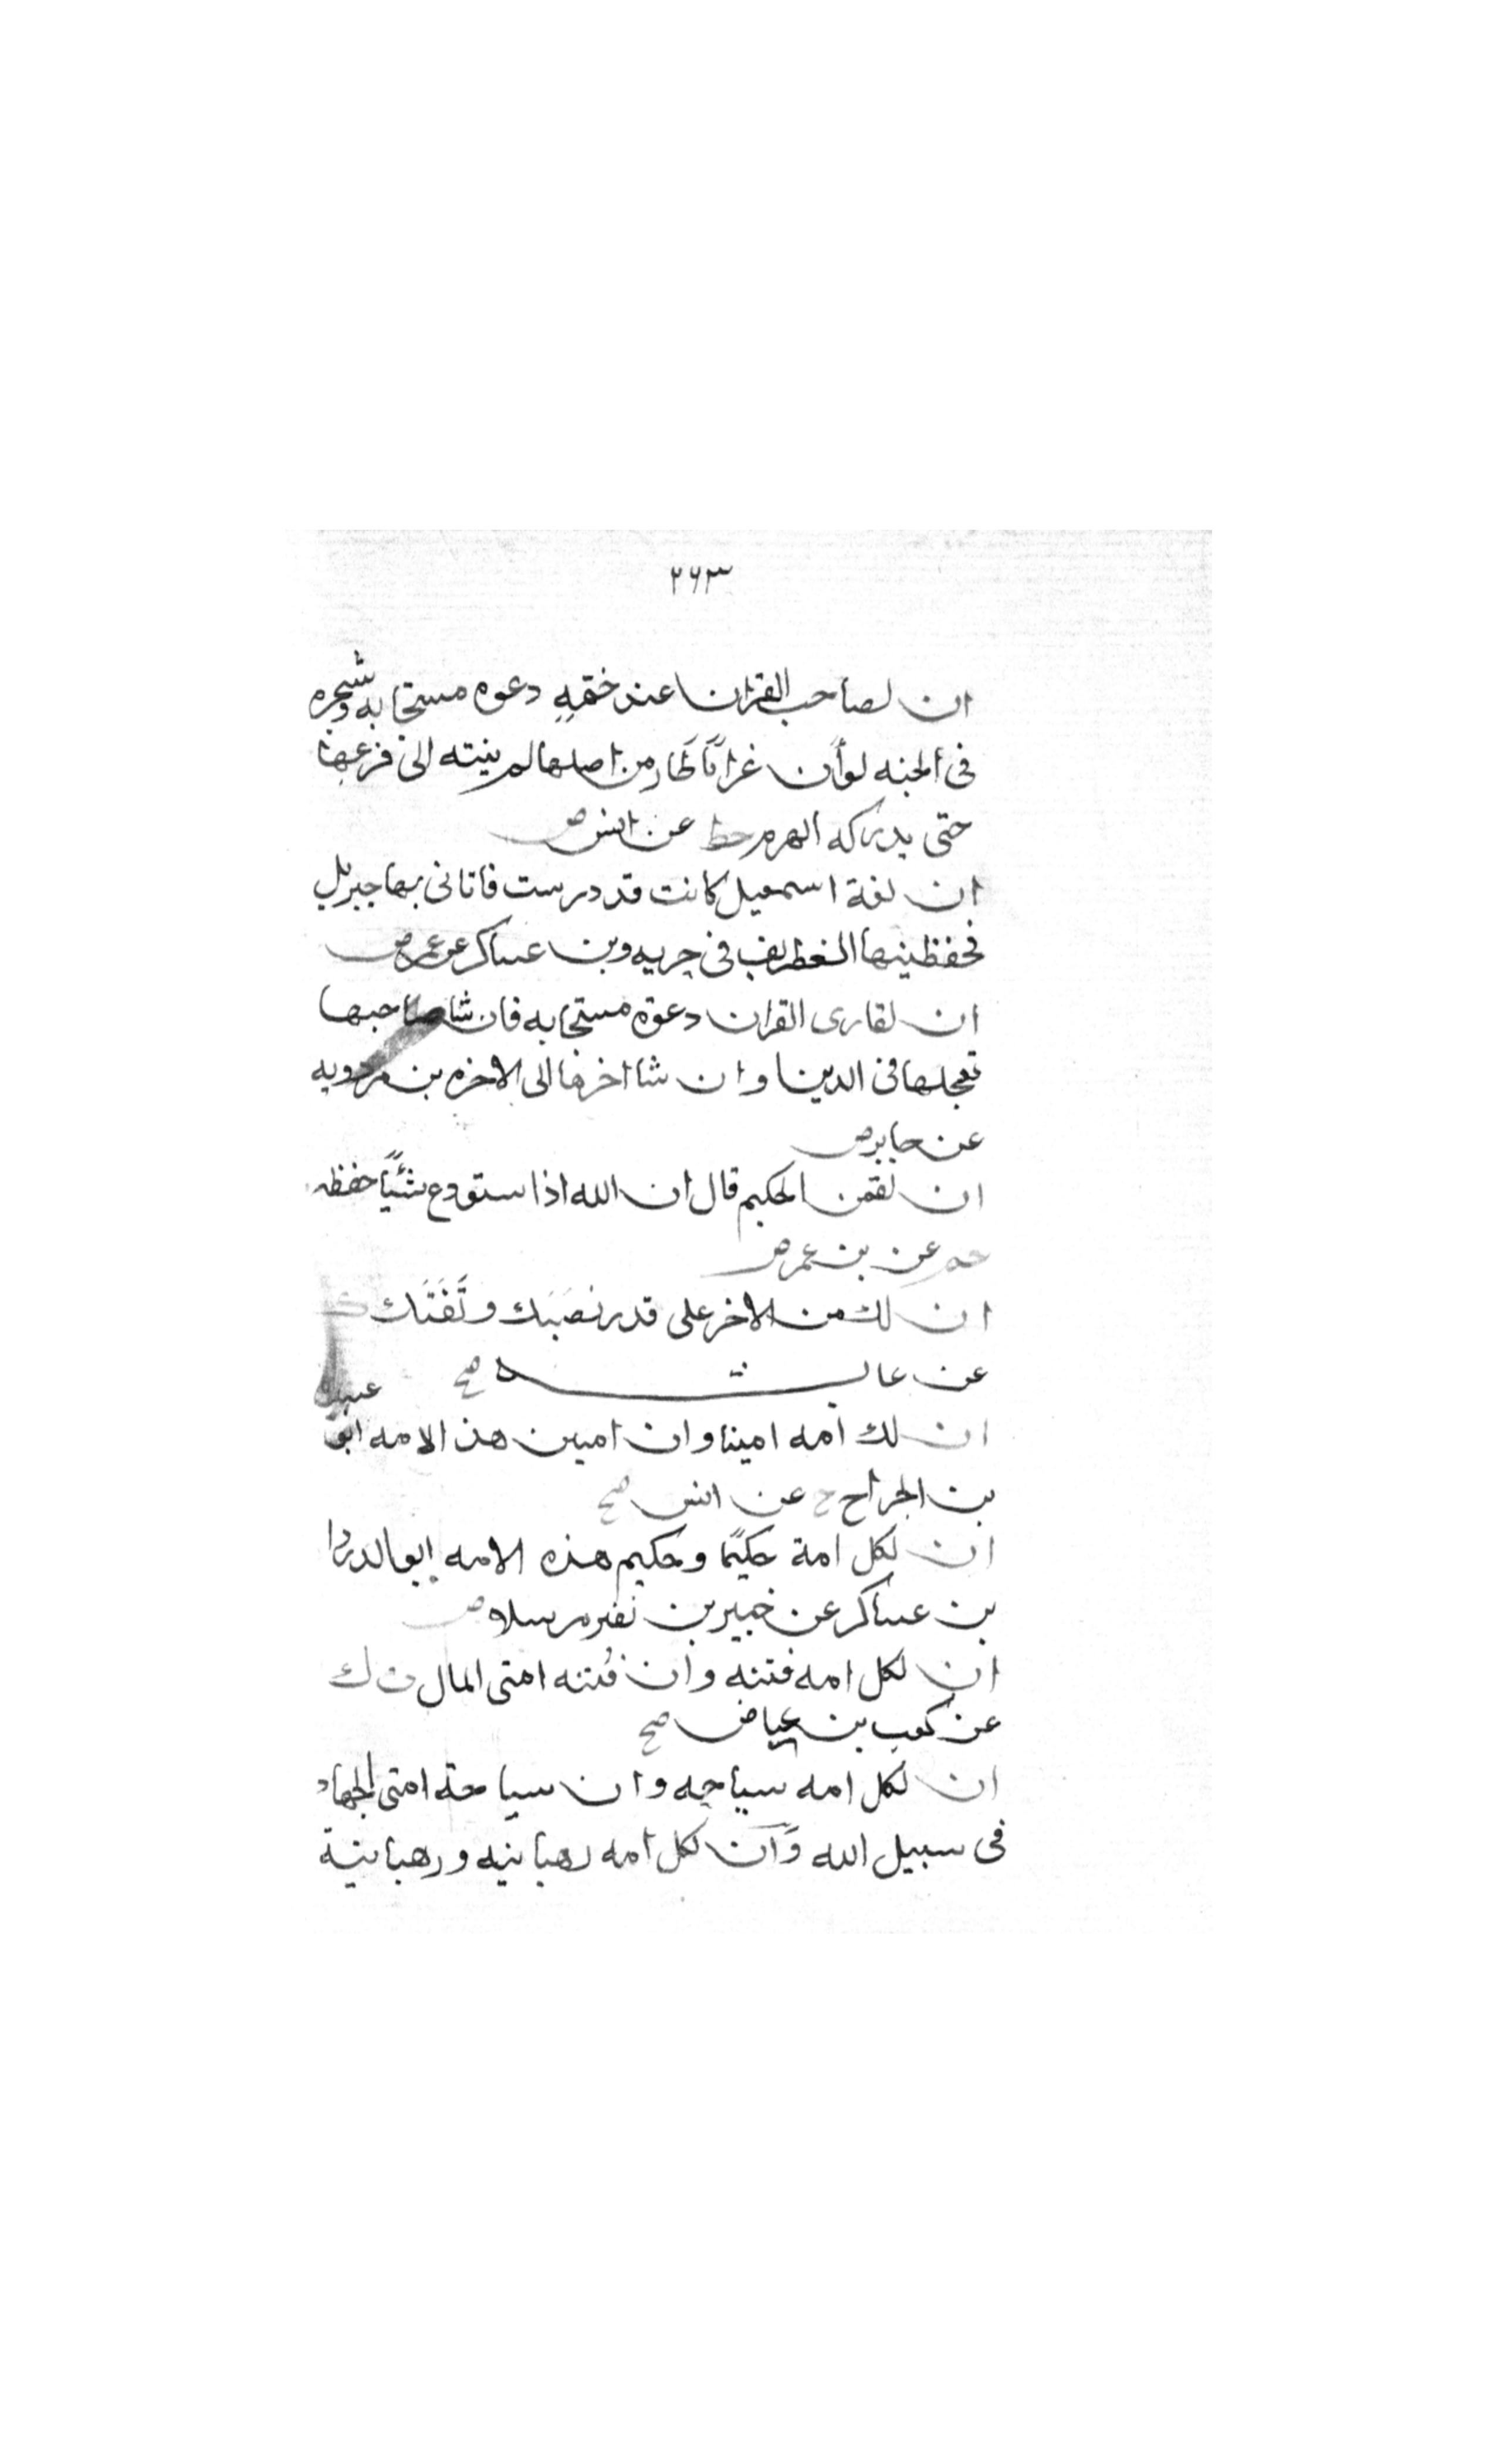 ٢٦٣
ان لصاحب القران عند ختمه دعوه مستجابه وشجره
فى الجنه لوأن غرابًا طار من اصلها لم ينته الى فرعها
حتى يدركه الهرم خط عن انس ض
ان لغة اسمعيل كانت قد درست فاتانى بها جبريل
فحفظنيها الغطريف فى جزيه وبن عساكر عن عمر ض
ان لقارى القران دعوة مستجابه فان شا صاحبها
تعجلها فى الدينا وان شا اخرها الى الاخره بن مردويه
عن جابر ض
ان لقمن الحكيم قال ان الله اذا ستودع شئيًا حفظه
حم عن بن عمر ض
ان لك من الاخر على قدر نصَبَك ونَفَقَتَك ك
عن عائشه صح
ان لك امه امينا وان امين هذ الامه ابو عبيدة
بن الجراح خ عن انس صح
ان لكل امة حكيمًا وحكيم هذه الامه ابو الدردا
بن عساكر عن جبير بن نفير مرسلا ض
ان لكل امه فتنه وان فتنه امتى المال ت ك
عن كعب بن عياض صح
ان لكل امه سياحه وان سياحة امتى الجهاد
فى سبيل الله وَان لكل امه رهبانيه ورهبانية